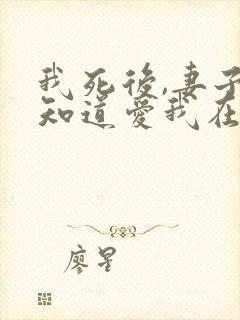 我死後,妻子
知道愛我在
廖星